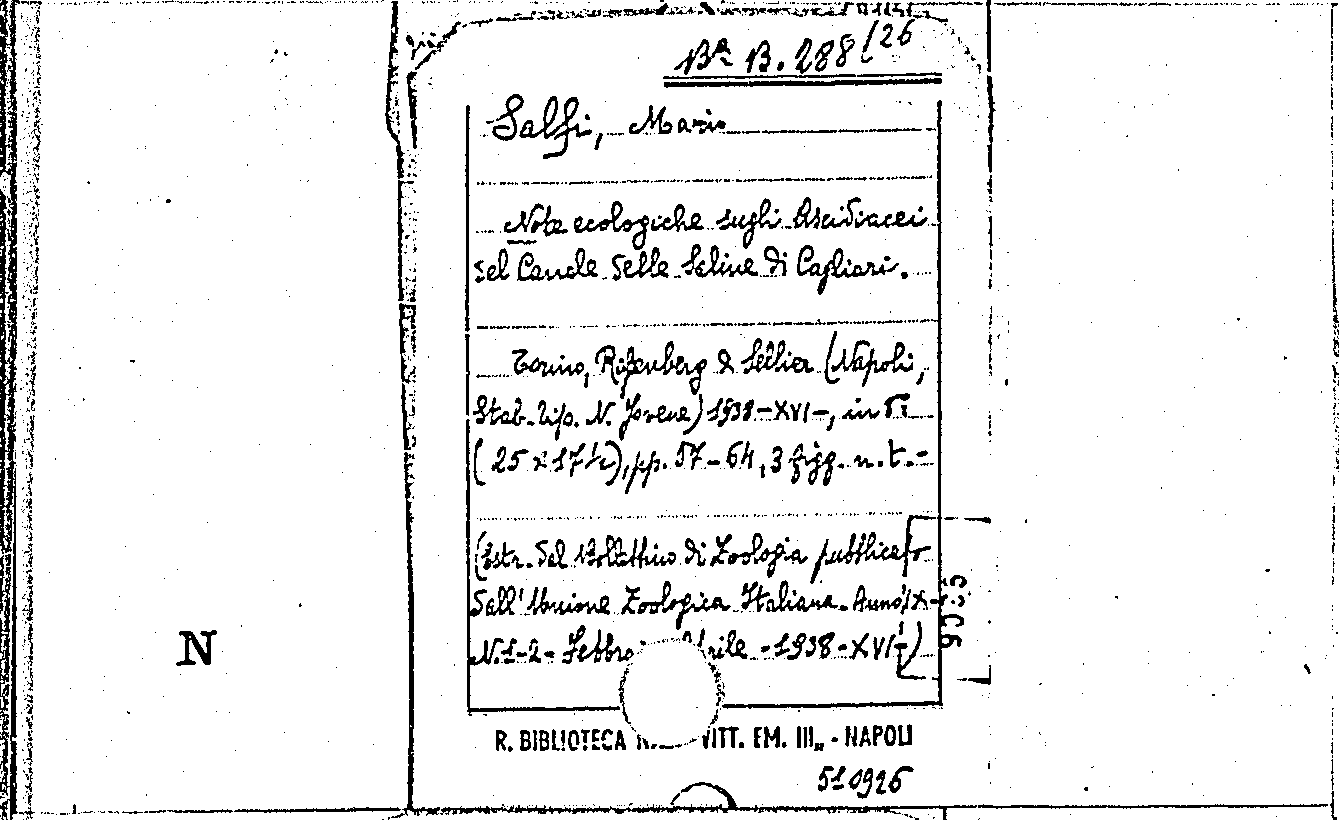 Bª B. 288(26
Salfi, Mario
Note ecologiche sugli Ascidiacei
del Canale delle Saline di Cagliari.
Torino, Rosenberg & Sellier (Napoli,
Stab. Tip. N. Jovene) 1938-XVI-, in 8º
(25 x 17½), pp. 57-64, 3 figg. n. t.-
(Estr. dal Bollettino di Zoologia pubblicato
dall'Unione Zoologica Italiana. Anno IX-
N. 1-2- Febbraio Aprile - 1938-XVI-)
R. BIBLIOTECA VITT. EM. III„ - NAPOLI
510926
N